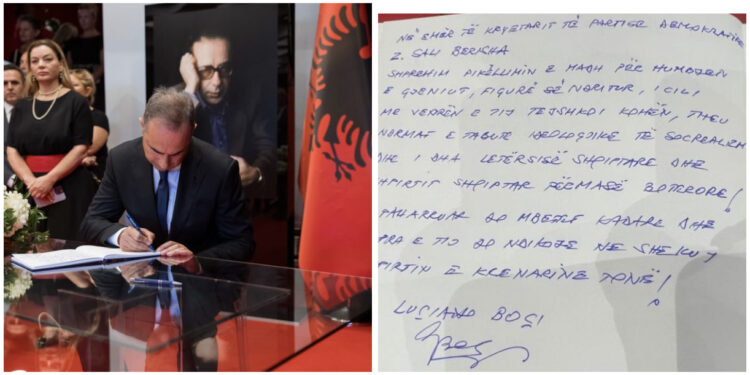 NË EMËR TË KRYETARIT TË PARTISË DEMOKRATIKE
Z. SALI BERISHA
SHPREHIM PIKËLLIMIN E MADH PËR HUMBJEN
E GJENIUT, FIGURË SË NDRITUR, I CILI
ME VEPRËN E TIJ TEJSHKOI KOHËN, THEU
NORMAT E TABUTE IDEOLOGJIKE TË SOCREALIZM
DHE I DHA LETËRSISË SHQIPTARE DHE
SHPIRTIT SHQIPTAR PËRMASË BOTERORE!
PAHARRUAR DO MBETET KADARE DHE
PRA E TIJ DO NDIKOJE NE SHEKUJ
PIRTIN E KLENARINE TONË!
LUÇIANO BOÇI